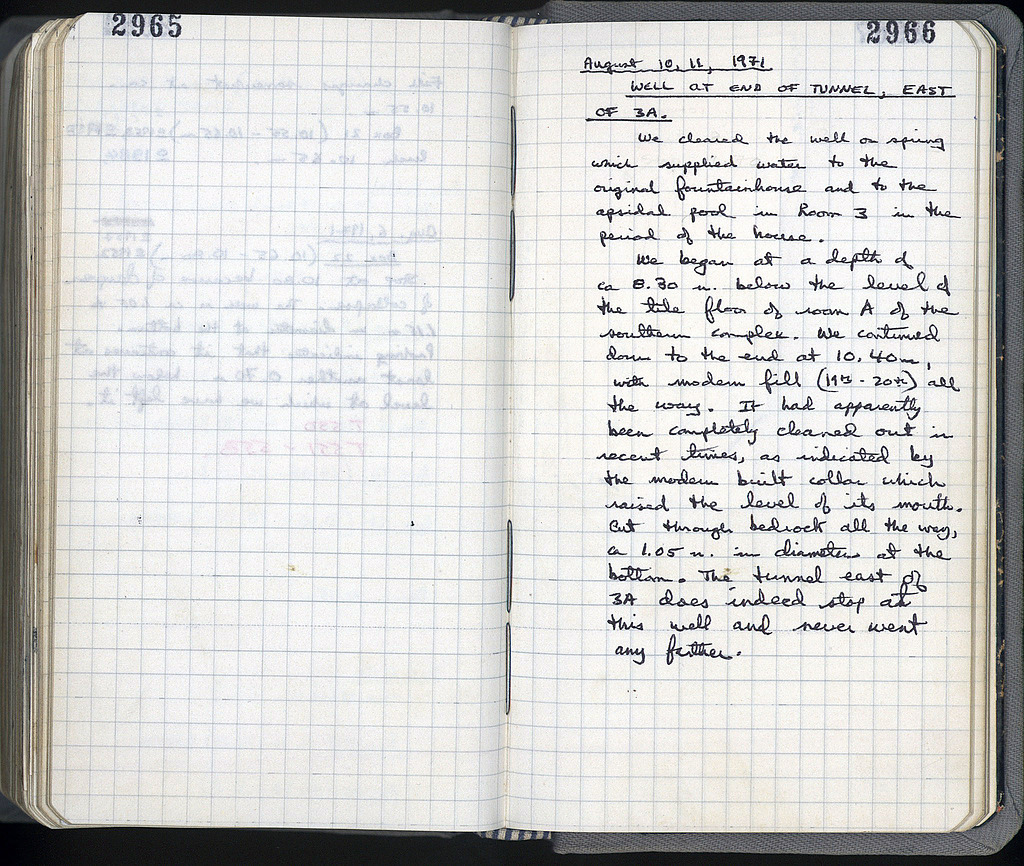 2965
2966
August 10, 11, 1971
WELL AT END OF TUNNEL, EAST
OF 3A.
We cleared the well or spring
which supplied water to the
original fountainhouse and to the
apsidal pool in Room 3 in the
period of the house.
We began at a depth of
ca 8.30 m. below the level of
the tile floor of room A of the
southern complex. We continued
down to the end at 10.40m,
with modern fill (19th - 20th) all
the way. It had apparently
been completely cleaned out in
recent times, as indicated by
the modern built collar which
raised the level of its mouth.
Cut through bedrock all the way,
ca 1.05 m. in diameter at the
bottom. The tunnel east of
3A does indeed stop at
this well and never went
any farther.